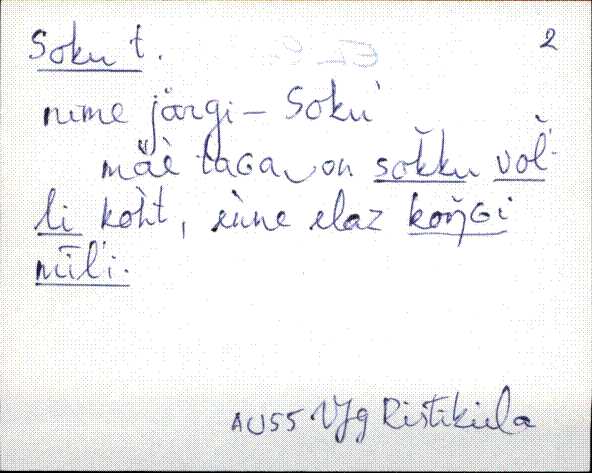 Soku t. 2
nime järgi – Soku
mäè taGa on sokku vol̆'-
li koht, enne elaz koŋ̆Gi
mīl'i.
AU55 Vjg Ristiküla